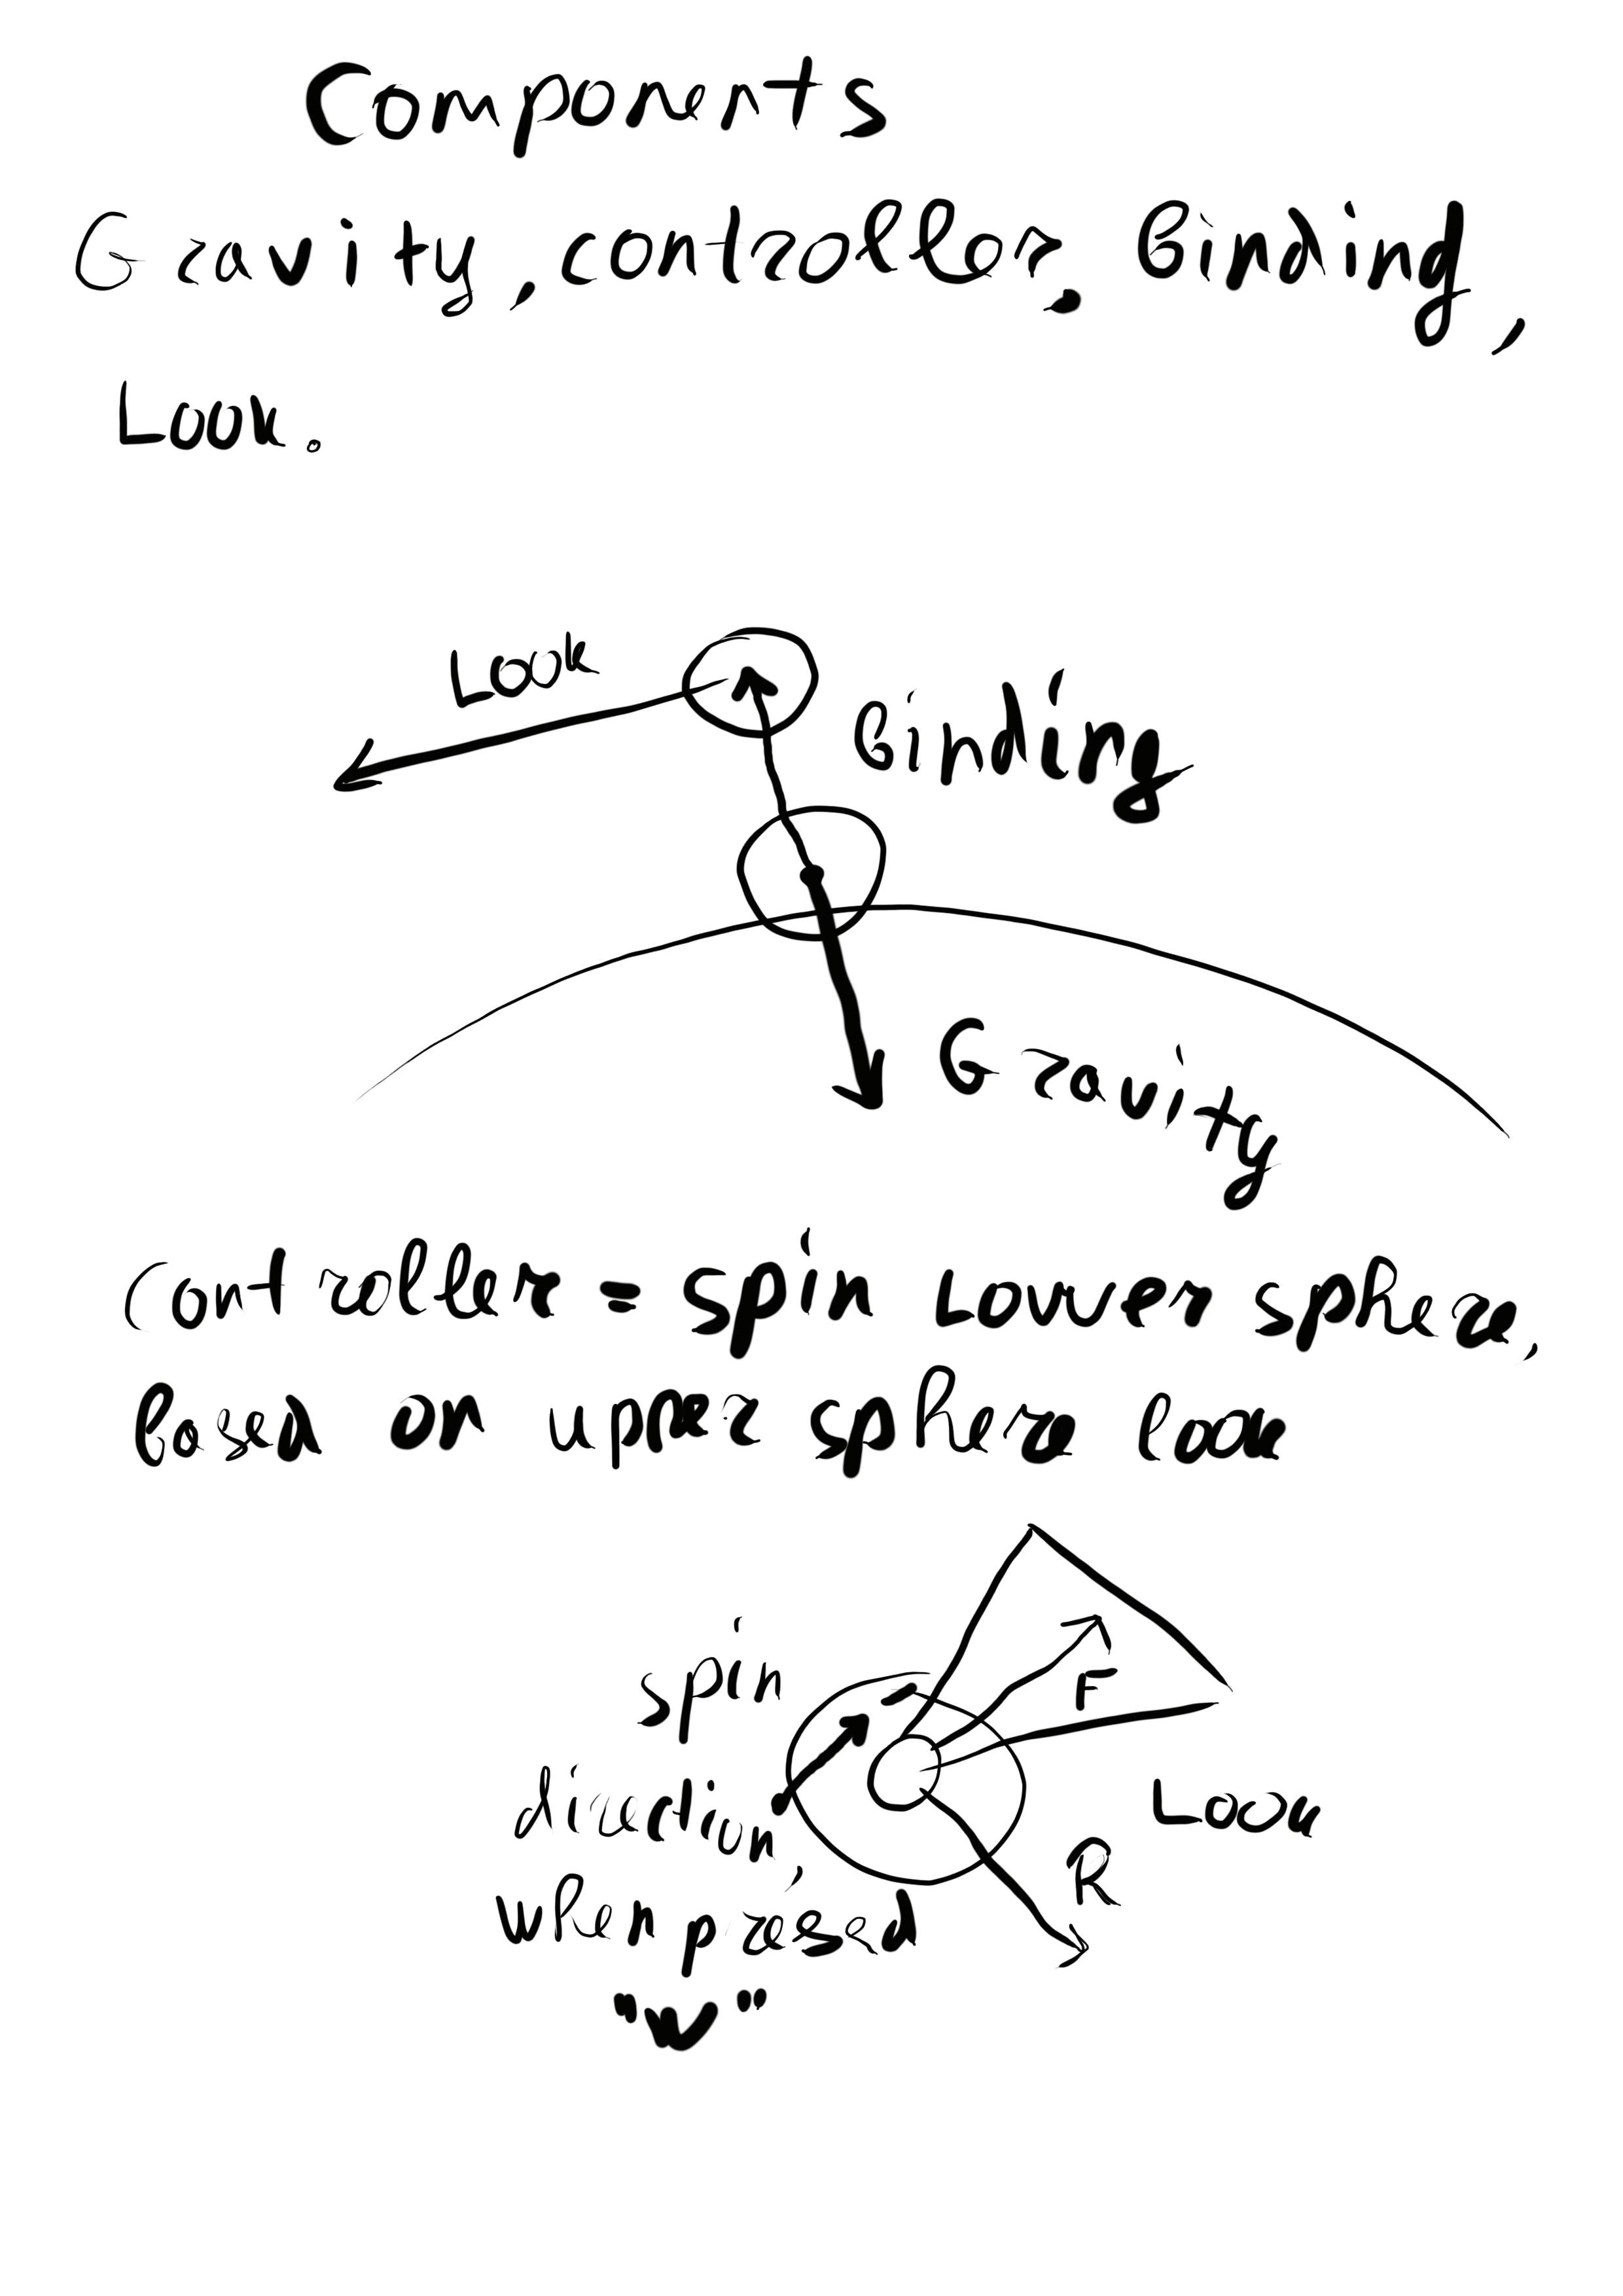 Components
Gravity, controller, Binding,
Look.
Look
Binding
Gravity
Controller = spin lower sphere,
based on upper sphere look
spin
direction,
when pressed
"W"
F
Look
R